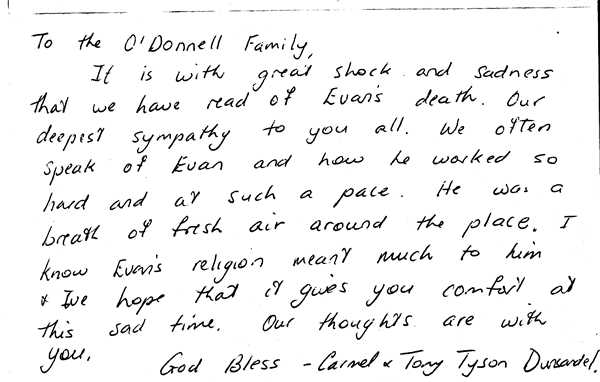 To the O'Donnell Family,
It is with great shock and sadness
that we have read of Evan's death. Our
deepest sympathy to you all. We often
speak of Evan and how he worked so
hard and at such a pace. He was a
breath of fresh air around the place. I
know Evan's religion meant much to him
& I've hope that it gives you comfort at
this sad time. Our thoughts are with
you. God Bless - Carmel & Tony Tyson Dunsandel.